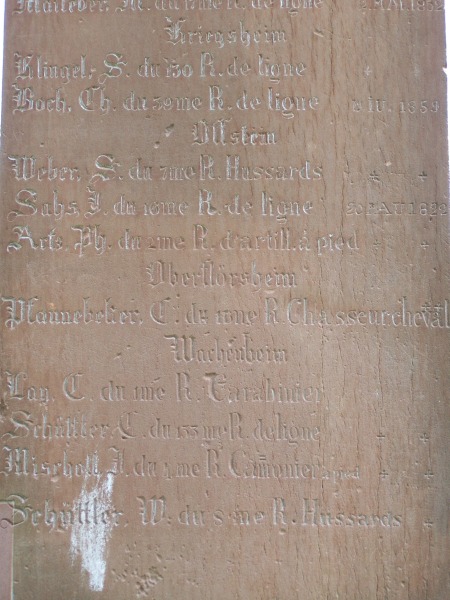 du R. de ligne
Kriegsheim
Klingel, S. du 130 R. de ligne +
Boch, Ch. du 59me R. de ligne 8 IV. 1859
Offstein
Weber, S. du 7me R. Hussards + +
Sahs, J. du 16me R. de ligne 1822
Arts, Ph. du 2me R. d'artill. à pied + +
Oberflörsheim
Pfannebeker, C. du R. Chasseur cheval
Wachenheim
Lay, C. du 1me R. Carabinier
Schüttler, C. du 133 me R. de ligne + +
J. du 1.me R. Canonier à pied + +
Schüttler, W. du 8me R. Hussards +